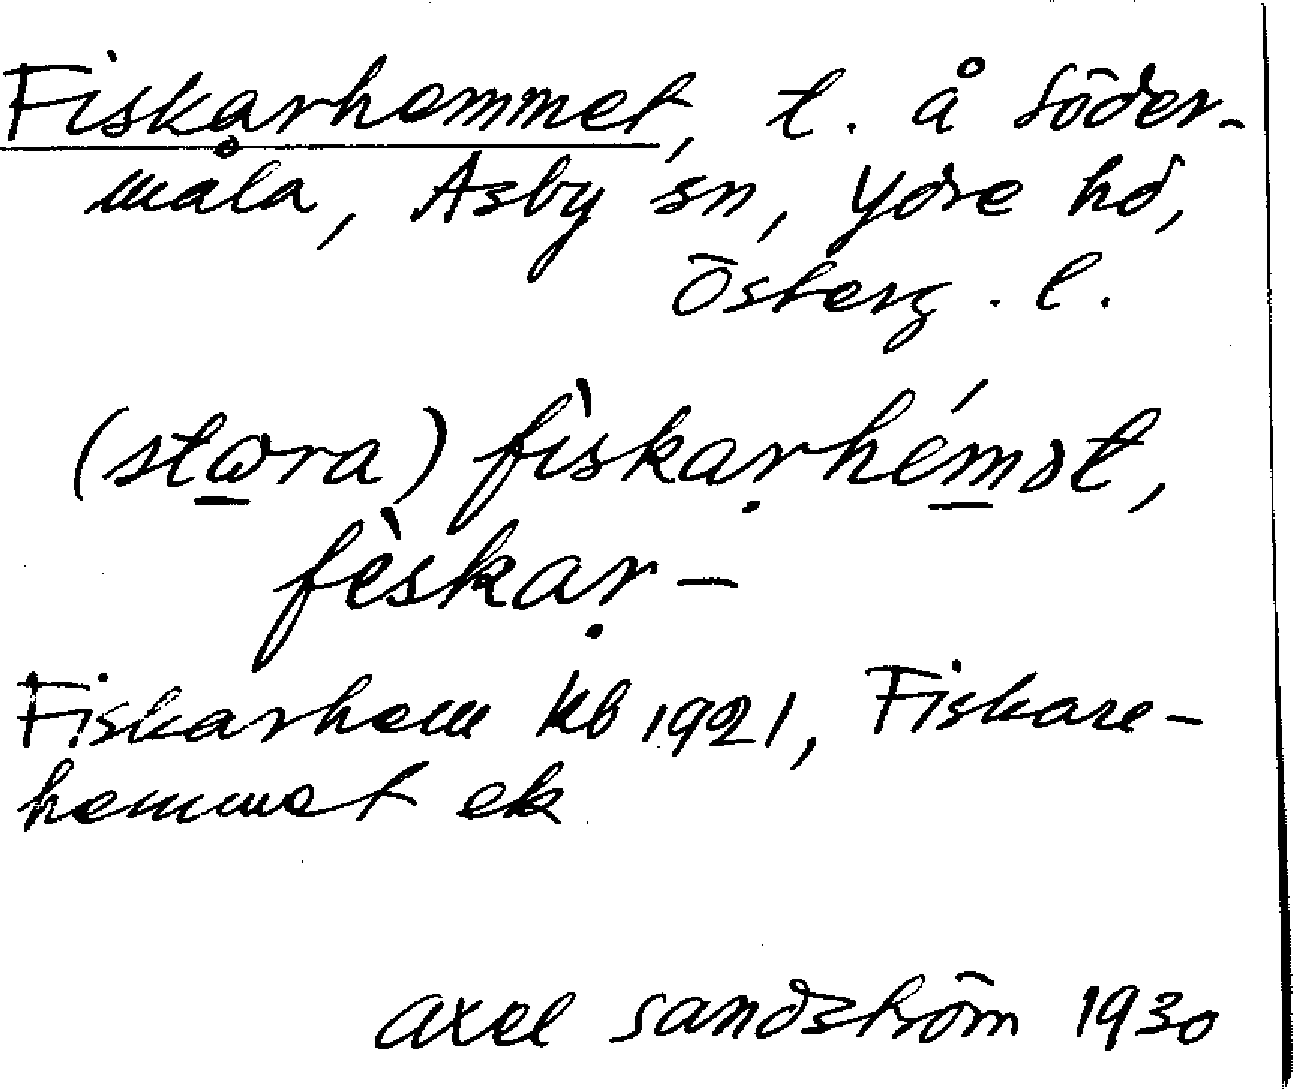 Fiskarhemmet, t. å Söder-
måla, Asby sn, Ydre hd,
Österg. l.
(stɷra) fìskaṛhémət,
fèskaṛ-
Fiskarhem kb 1921, Fiskare-
hemmet ek
Axel Sandström 1930